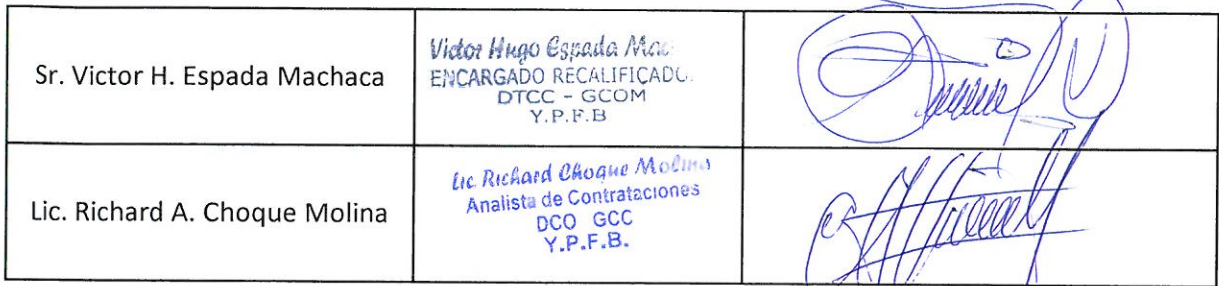 Sr. Victor H. Espada Machaca
Victor Hugo Espada Mac
ENCARGADO RECALIFICADO
DTCC - GCOM
Y.P.F.B
Lic. Richard A. Choque Molina
Lic. Richard Choque Molina
Analista de Contrataciones
DCO GCC
Y.P.F.B.